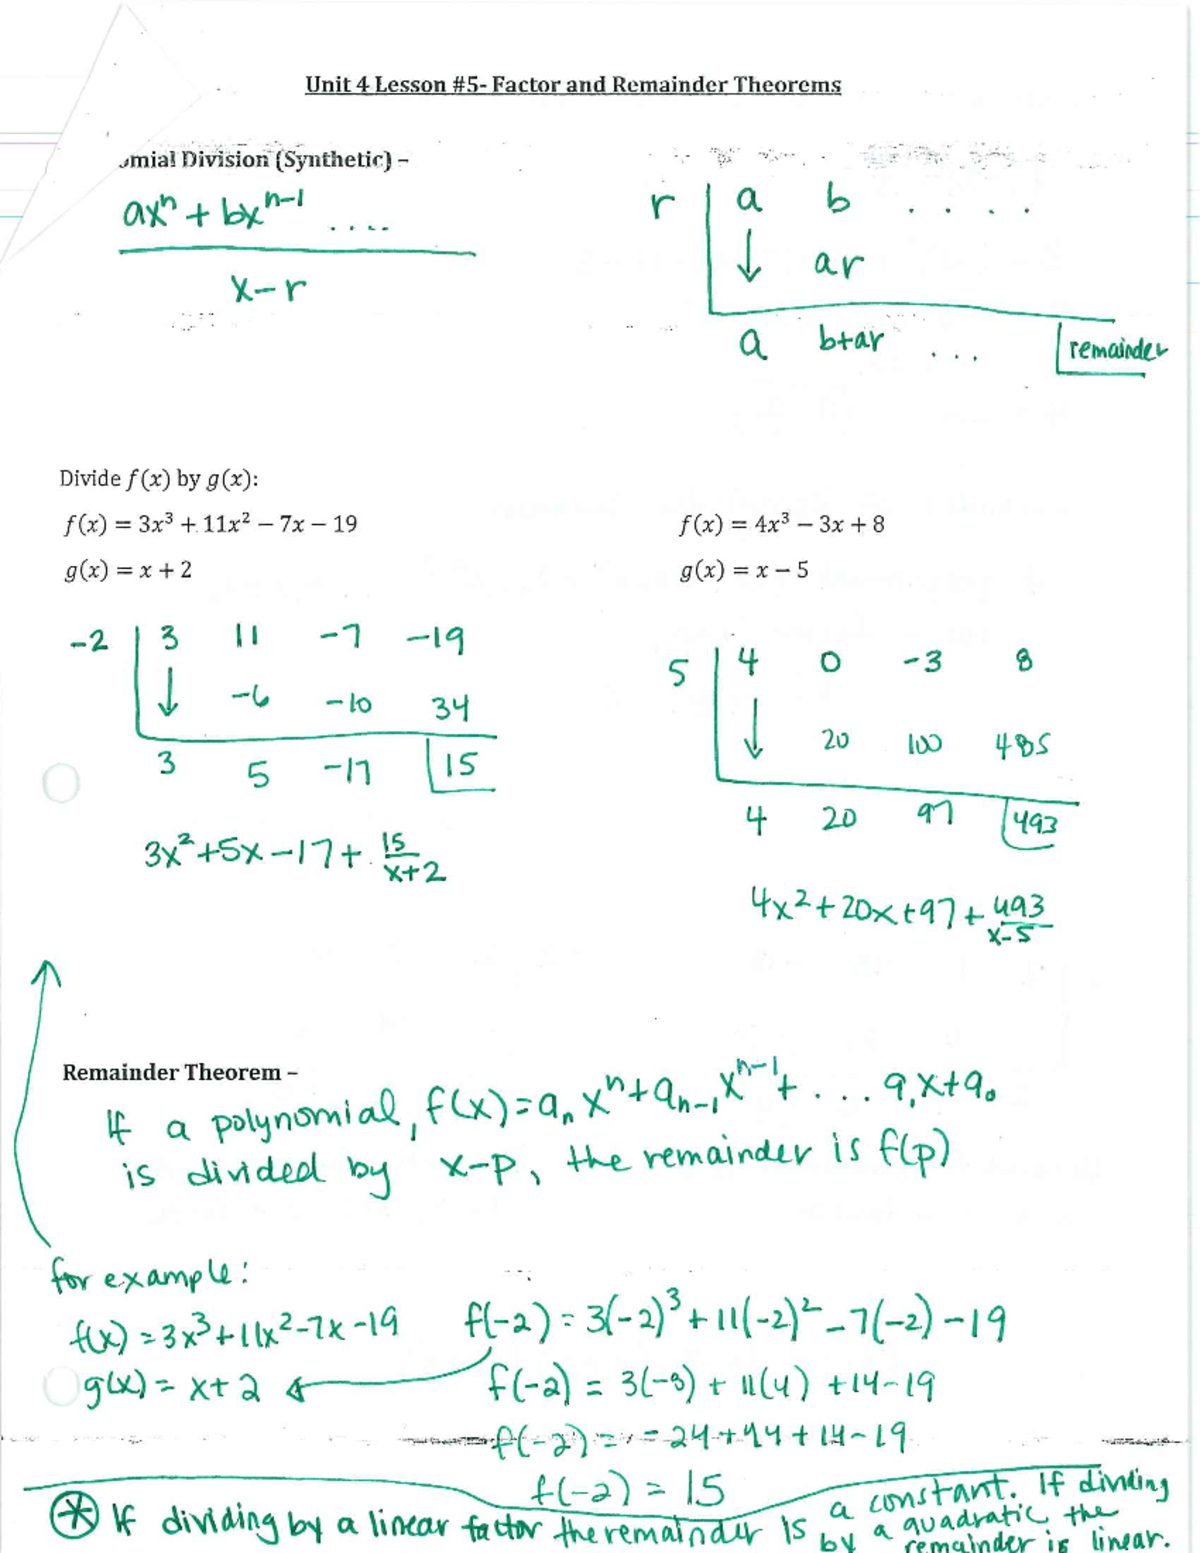 Unit 4 Lesson #5- Factor and Remainder Theorems
omial Division (Synthetic) –
axⁿ + bxⁿ⁻¹ ....
x-r
r a b . . . .
↓ ar
a b+ar ... remainder
Divide f(x) by g(x):
f(x) = 3x³ + 11x² – 7x – 19
g(x) = x + 2
-2 3 11 -7 -19
↓ -6 -10 34
3 5 -17 15
3x²+5x-17+ 15/x+2
f(x) = 4x³ – 3x + 8
g(x) = x – 5
5 4 0 -3 8
↓ 20 100 485
4 20 97 493
4x²+20x+97+ 493/x-5
Remainder Theorem –
If a polynomial, f(x)=aₙxⁿ+aₙ₋₁xⁿ⁻¹+ ... a₁x+a₀
is divided by x-p, the remainder is f(p)
for example:
f(x) = 3x³+11x²-7x-19
g(x) = x+2
f(-2) = 3(-2)³+11(-2)²-7(-2)-19
f(-2) = 3(-8) + 11(4) +14-19
f(-2) = -24+44+14-19
f(-2) = 15
* If dividing by a linear factor the remainder is a constant. If dividing
by a quadratic the
remainder is linear.